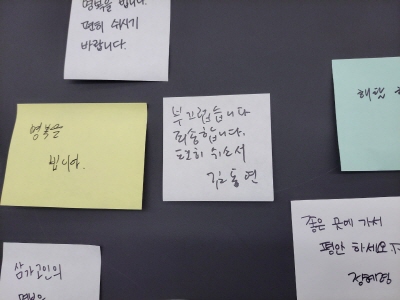 명복을 빕니다.
편히 쉬시기
바랍니다.
명복을
빕니다.
부끄럽습니다
죄송합니다.
편히 쉬소서
김동연
좋은 곳에 가서
평안 하세요
장혜영
삼가 고인의
명복을